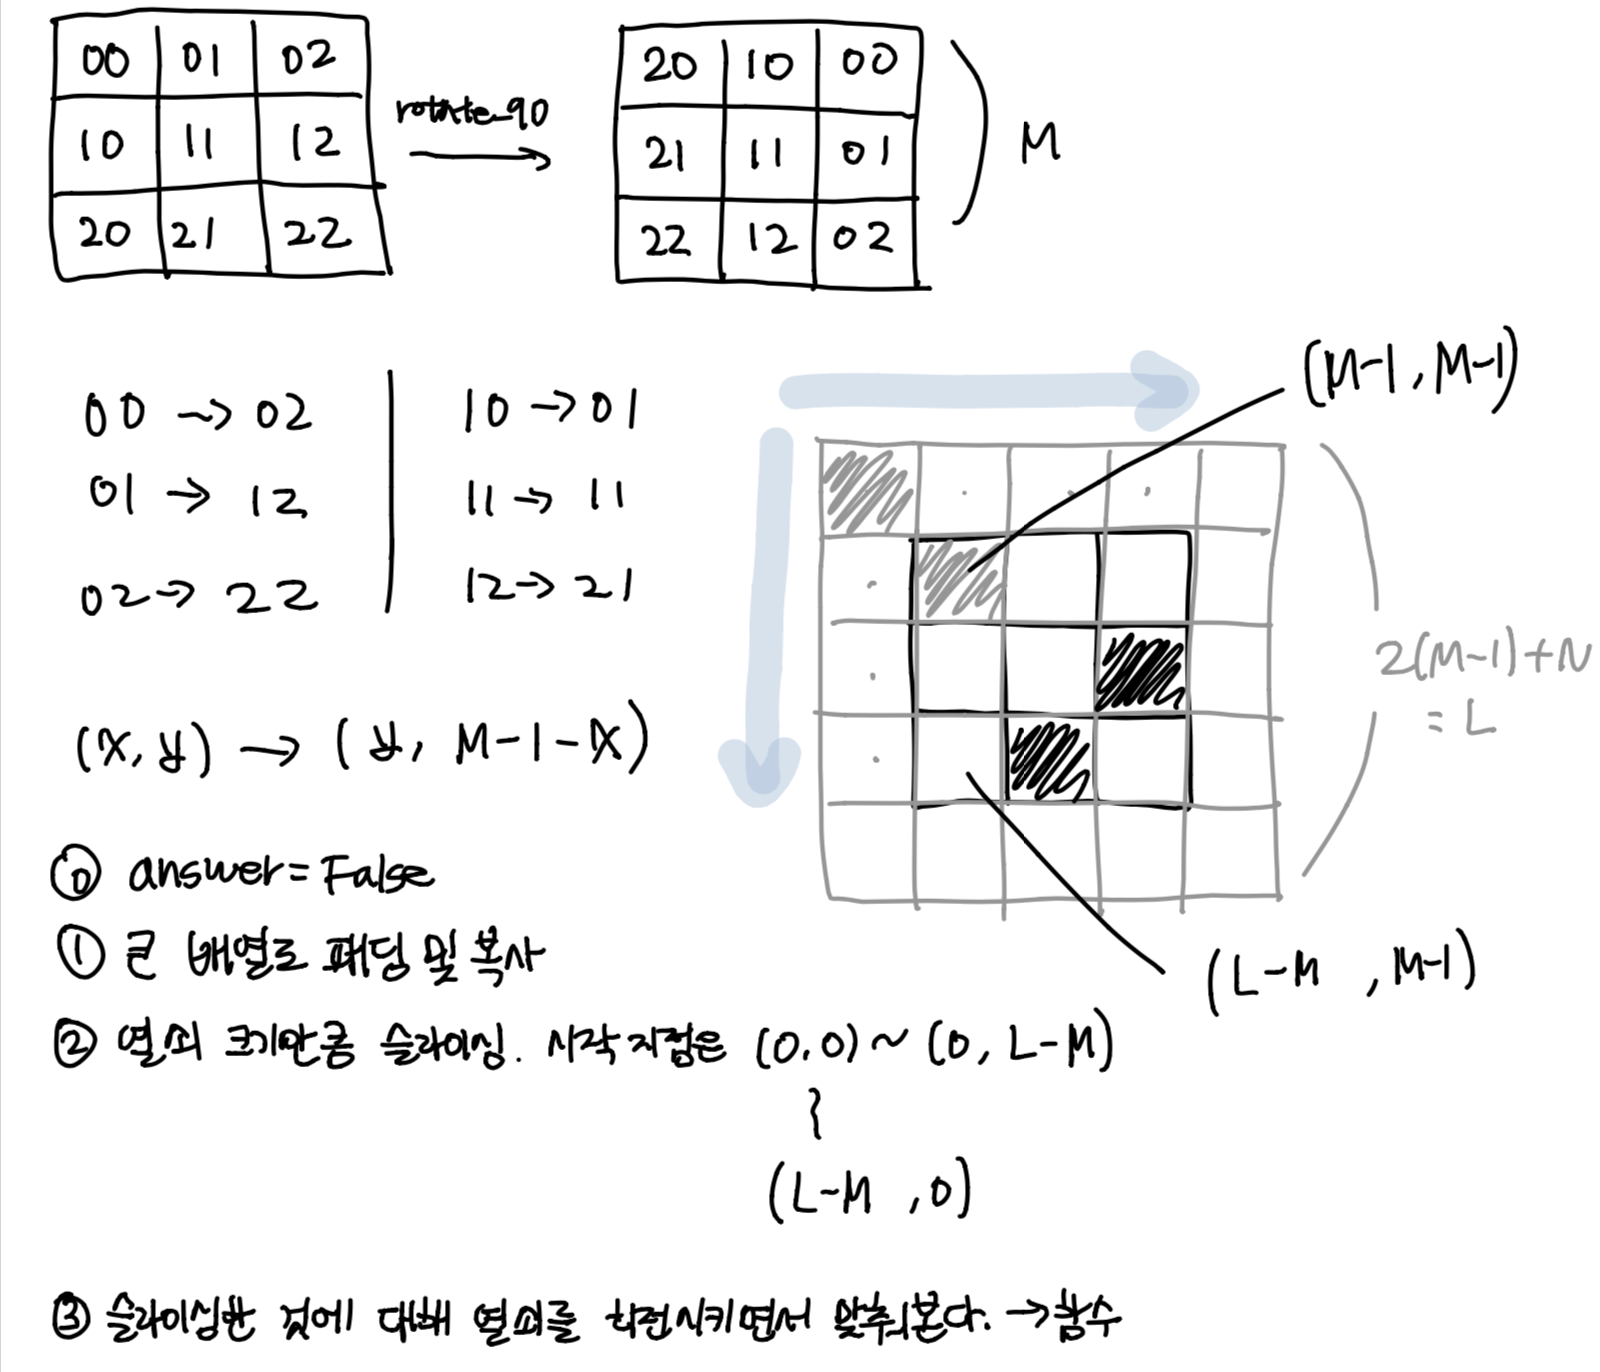 00 01 02
10 11 12
20 21 22
rotate_90
20 10 00
21 11 01
22 12 02
M
00 → 02
01 → 12
02 → 22
10 → 01
11 → 11
12 → 21
(x, y) → (y, M-1-x)
(M-1, M-1)
2(M-1)+N
= L
(L-M, M-1)
⓪ answer = False
① 큰 배열로 패딩 및 복사
② 열쇠 크기만큼 슬라이싱. 시작 지점은 (0,0) ~ (0, L-M)
~
(L-M, 0)
③ 슬라이싱한 것에 대해 열쇠를 회전시키면서 맞춰본다. → 함수